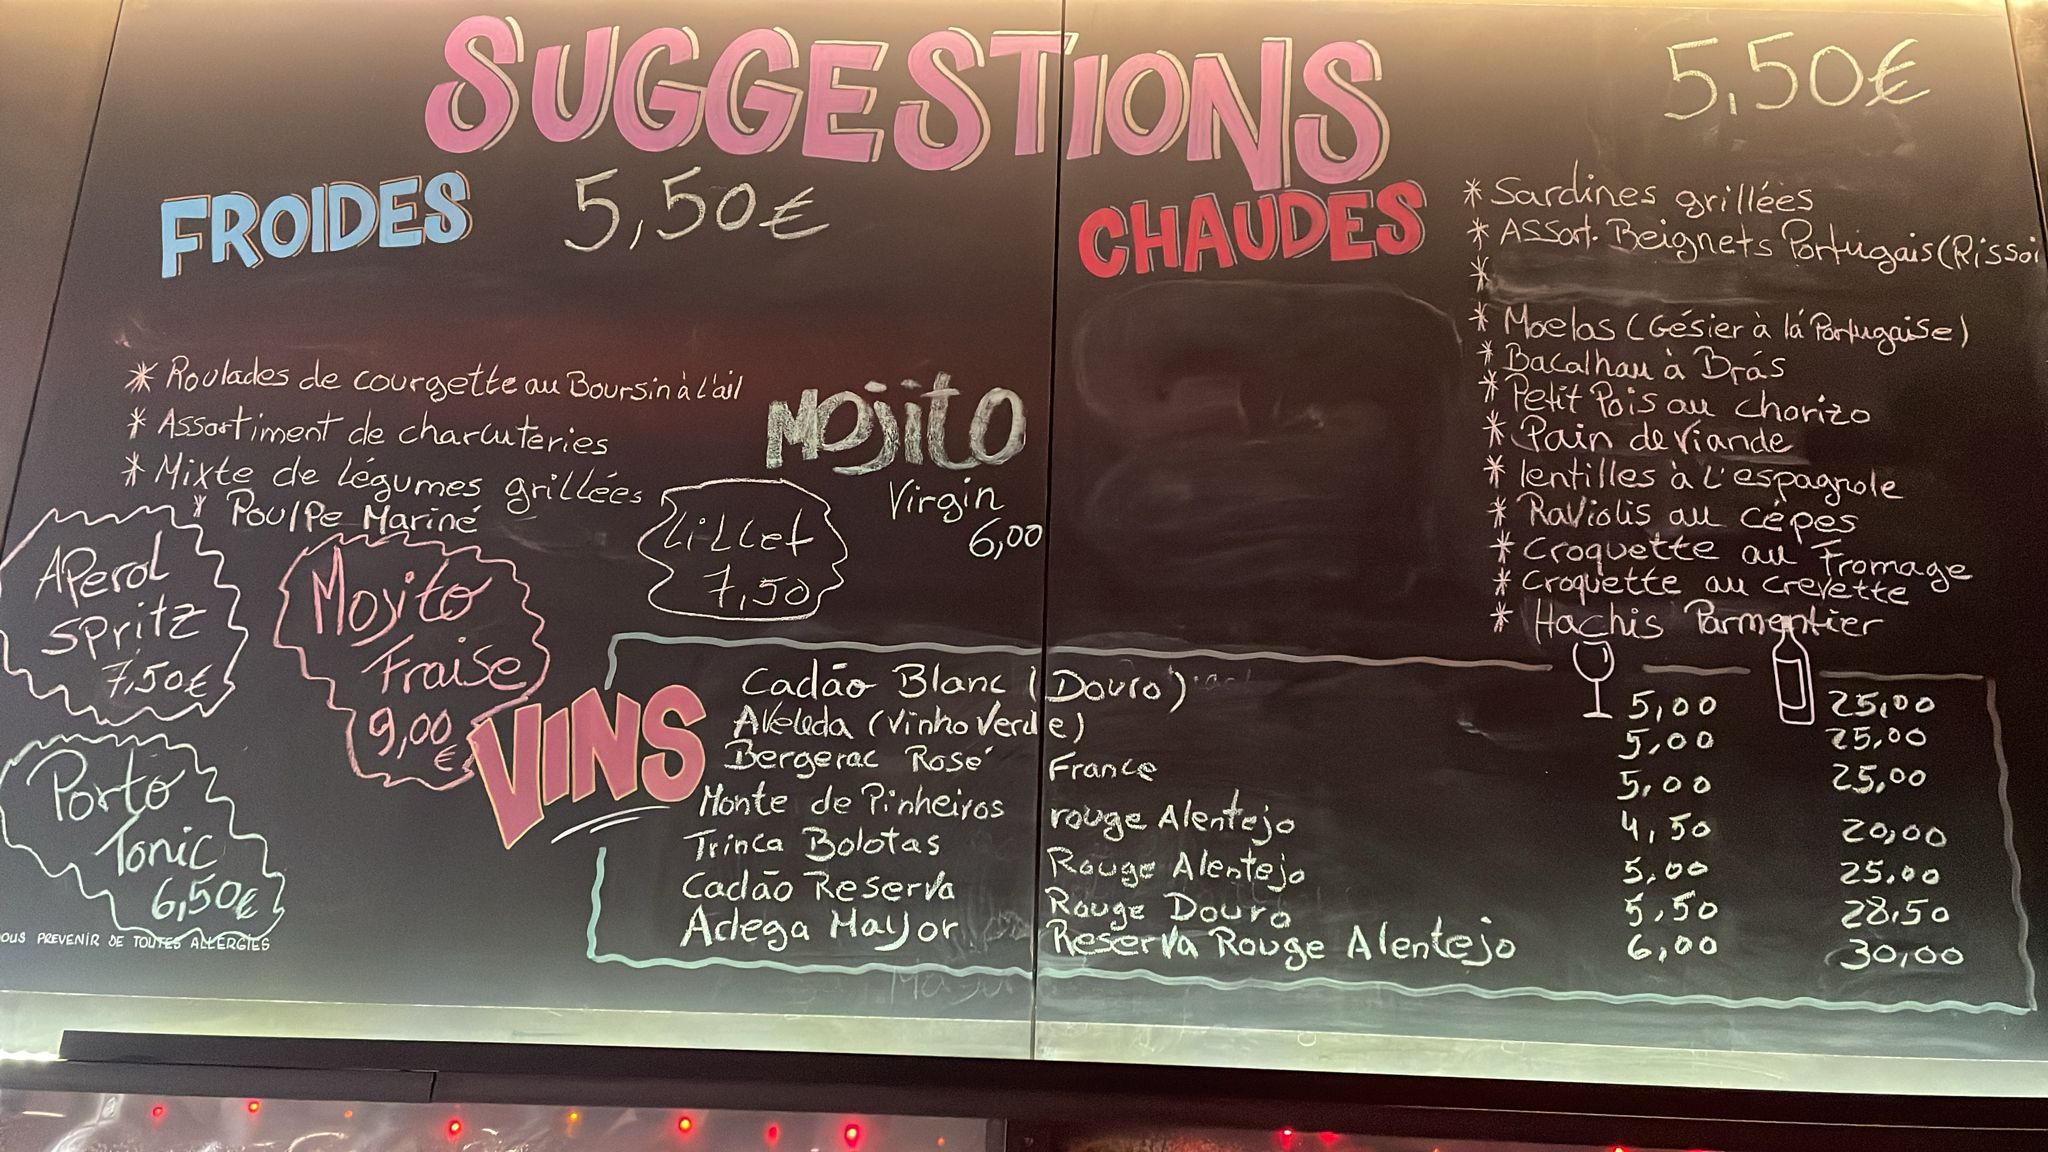 SUGGESTIONS
FROIDES 5,50€
* Roulades de courgette au Boursin à l'ail
* Assortiment de charcuteries
* Mixte de légumes grillées
* Poulpe Mariné
Mojito
Virgin
6,00
Lillet
7,50
Aperol
Spritz
7,50€
Mojito
Fraise
9,00
€
Porto
Tonic
6,50€
OUS PREVENIR DE TOUTES ALLERGIES
CHAUDES
5,50€
* Sardines grillées
* Assort. Beignets Portugais (Rissoi
*
* Moelas (Gésier à lá Portugaise)
* Bacalhau à Brás
* Petit Pois au chorizo
* Pain de viande
* lentilles à l'espagnole
* Raviolis au cépes
* Croquette au Fromage
* Croquette au crevette
* Hachis Parmentier
VINS
Cadão Blanc (Douro) 5,00 25,00
Aveleda (Vinho Verde) 5,00 25,00
Bergerac Rosé France 5,00 25,00
Monte de Pinheiros rouge Alentejo 4,50 20,00
Trinca Bolotas Rouge Alentejo 5,00 25,00
Cadão Reserva Rouge Douro 5,50 28,50
Adega Mayor Reserva Rouge Alentejo 6,00 30,00